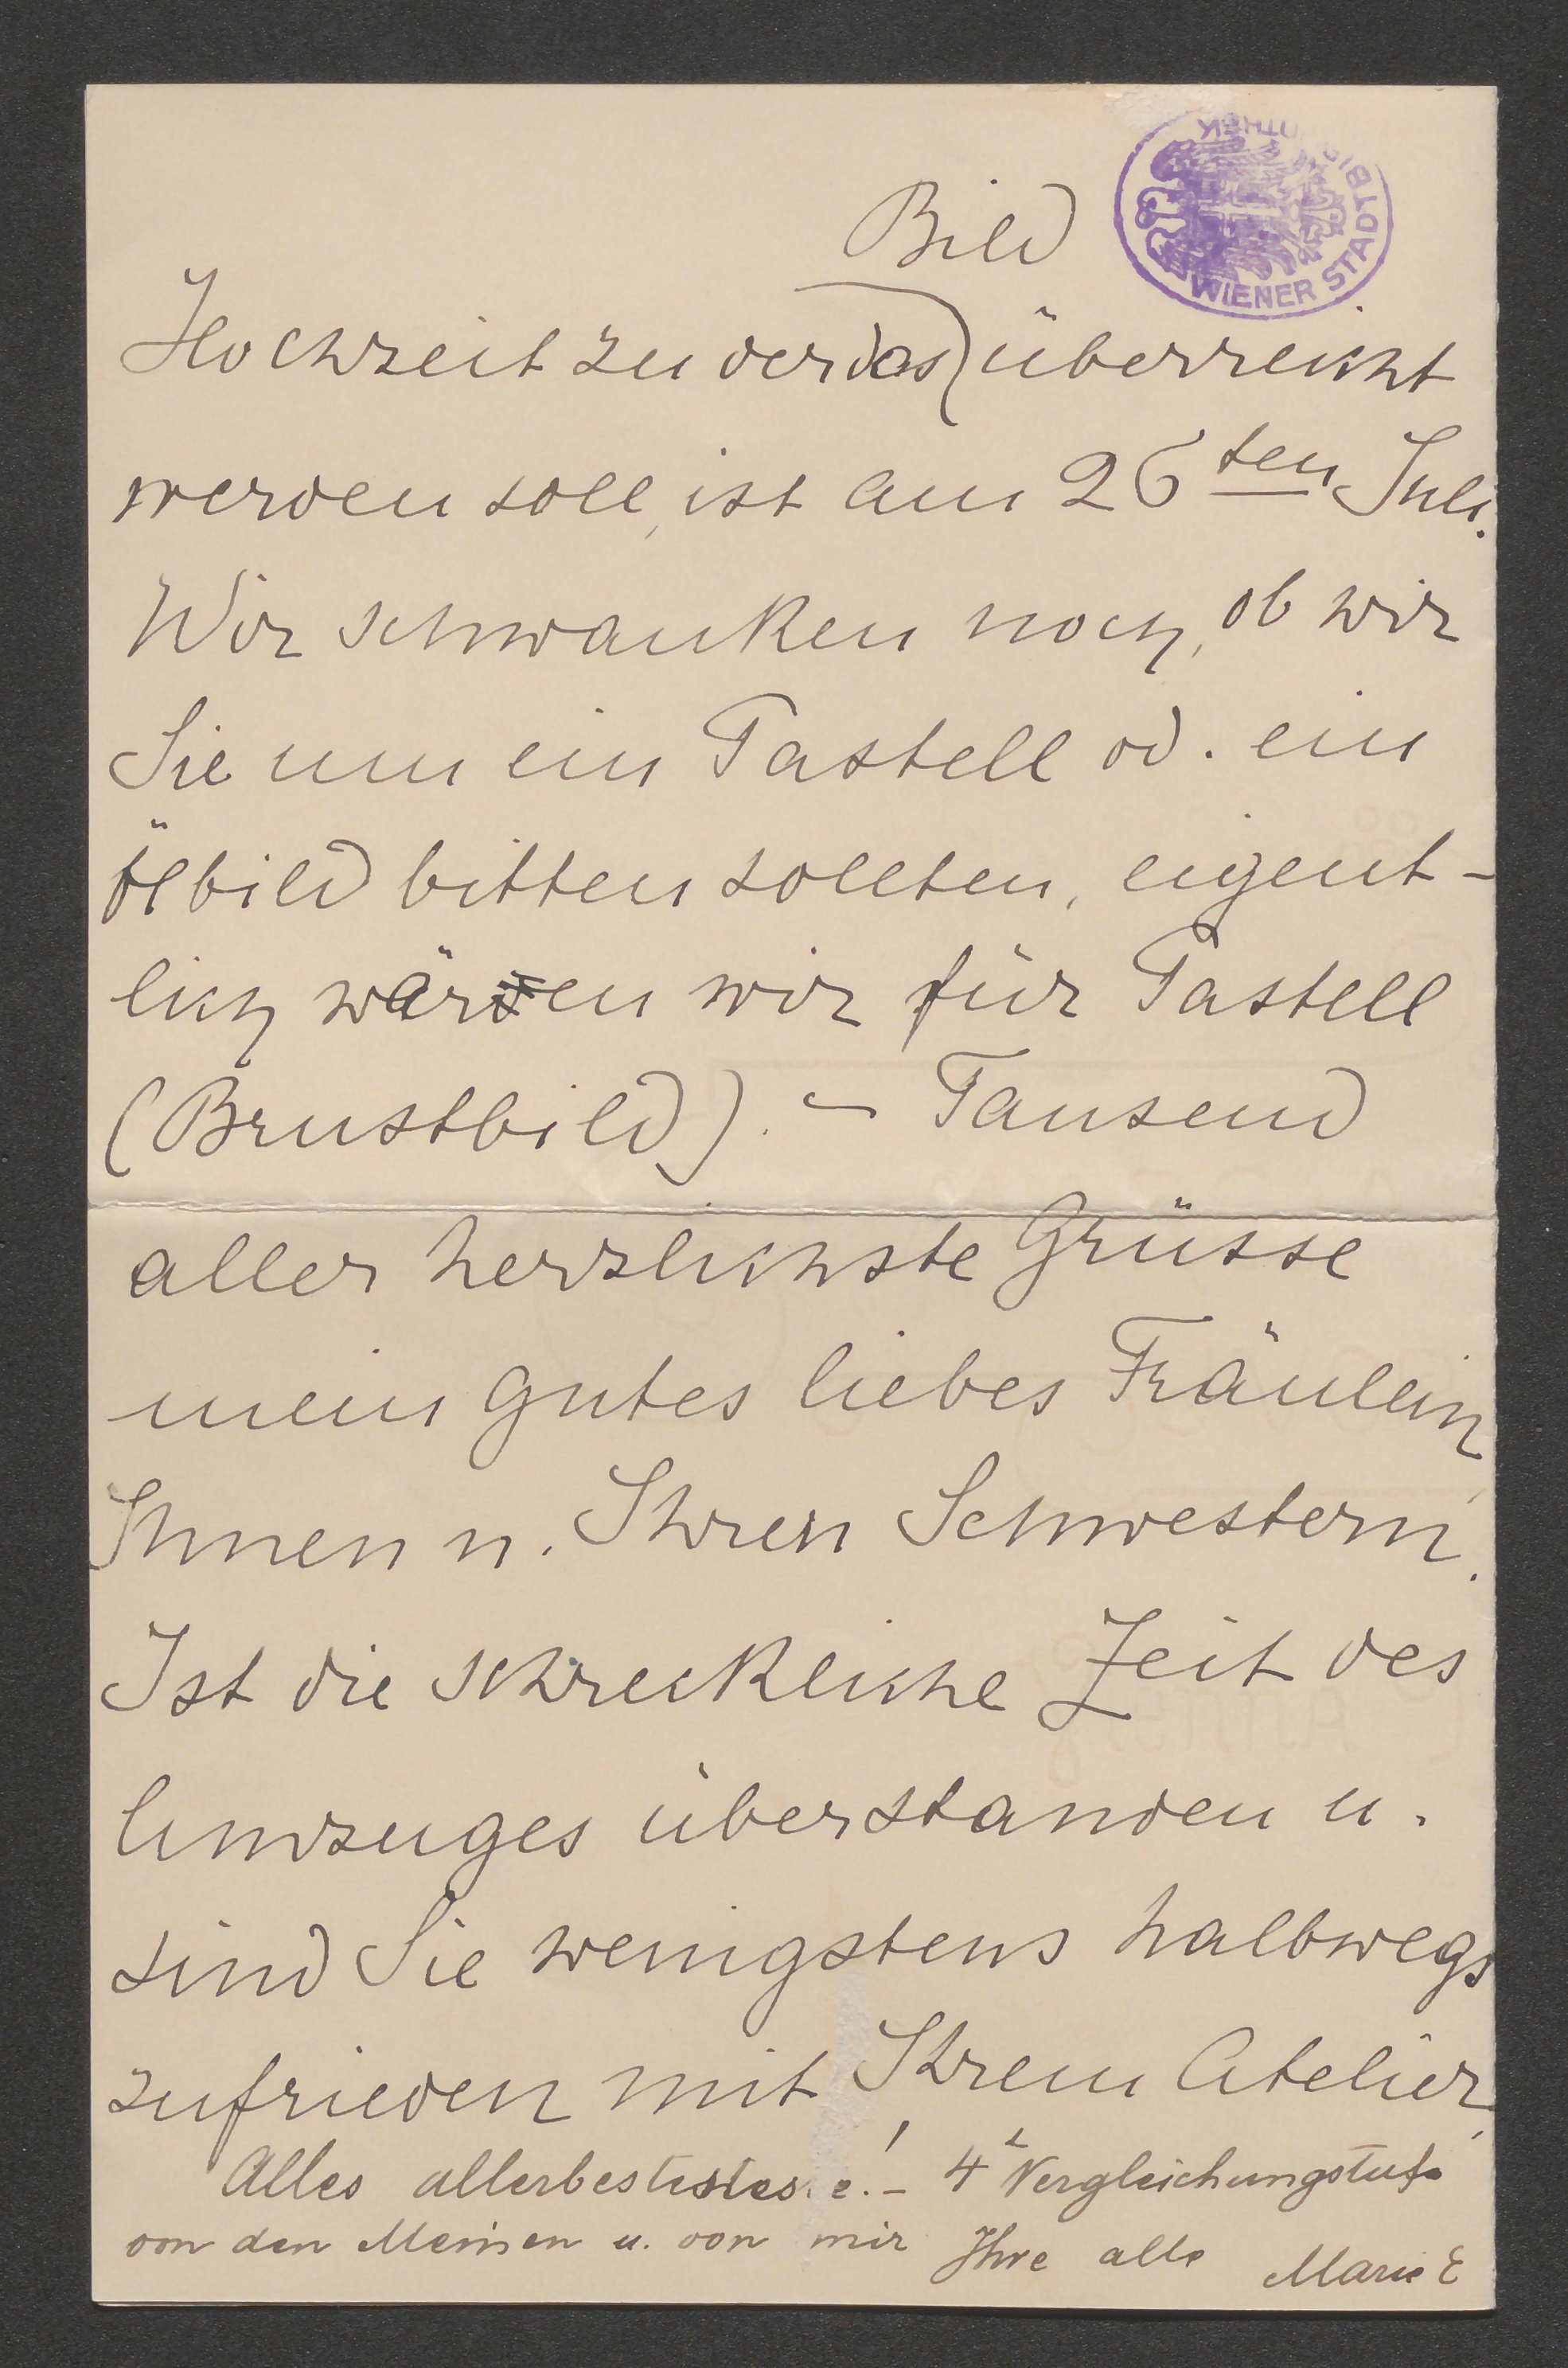 Bild
WIENER STADTBIBLIOTHEK
Hochzeit zu der das überreicht
werden soll, ist am 26ten Juli.
Wir schwanken noch, ob wir
Sie um ein Pastell od. ein
Ölbild bitten sollten, eigent-
lich wären wir für Pastell
(Brustbild). – Tausend
aller herzlichste Grüsse
mein gutes liebes Fräulein,
Ihnen u. Ihren Schwestern.
Ist die schreckliche Zeit des
Umzuges überstanden u.
sind Sie wenigstens halbwegs
zufrieden mit Ihrem Atelier
Alles allerbestestes ! – 4te Vergleichungstufe
von den Meinen u. von mir Ihre alte Marie E